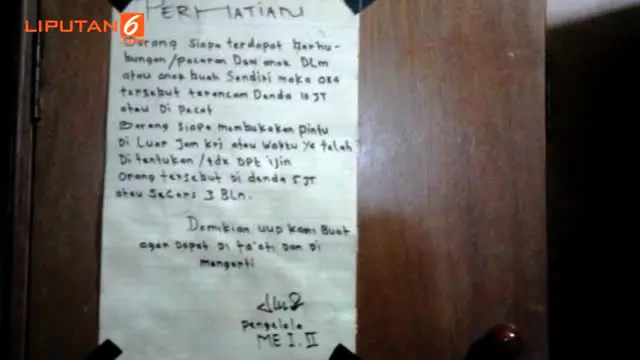 LIPUTAN 6
PERHATIAN
Barang siapa terdapat berhu-
bungan/pacaran Dgn anak DLm
atau anak buah Sendiri maka ORG
tersebut terancam Denda 10 JT
atau Di pecat
Barang siapa membukakan pintu
Di Luar Jam krj atau Waktu yg telah
Di tentukan/tdk DPt ijin
Orang tersebut di denda 5 JT
atau Secars 3 BLn.
Demikian uup kami Buat
agar Dapat Di ta'ati Dan Di
mengerti
pengelola
ME I. II